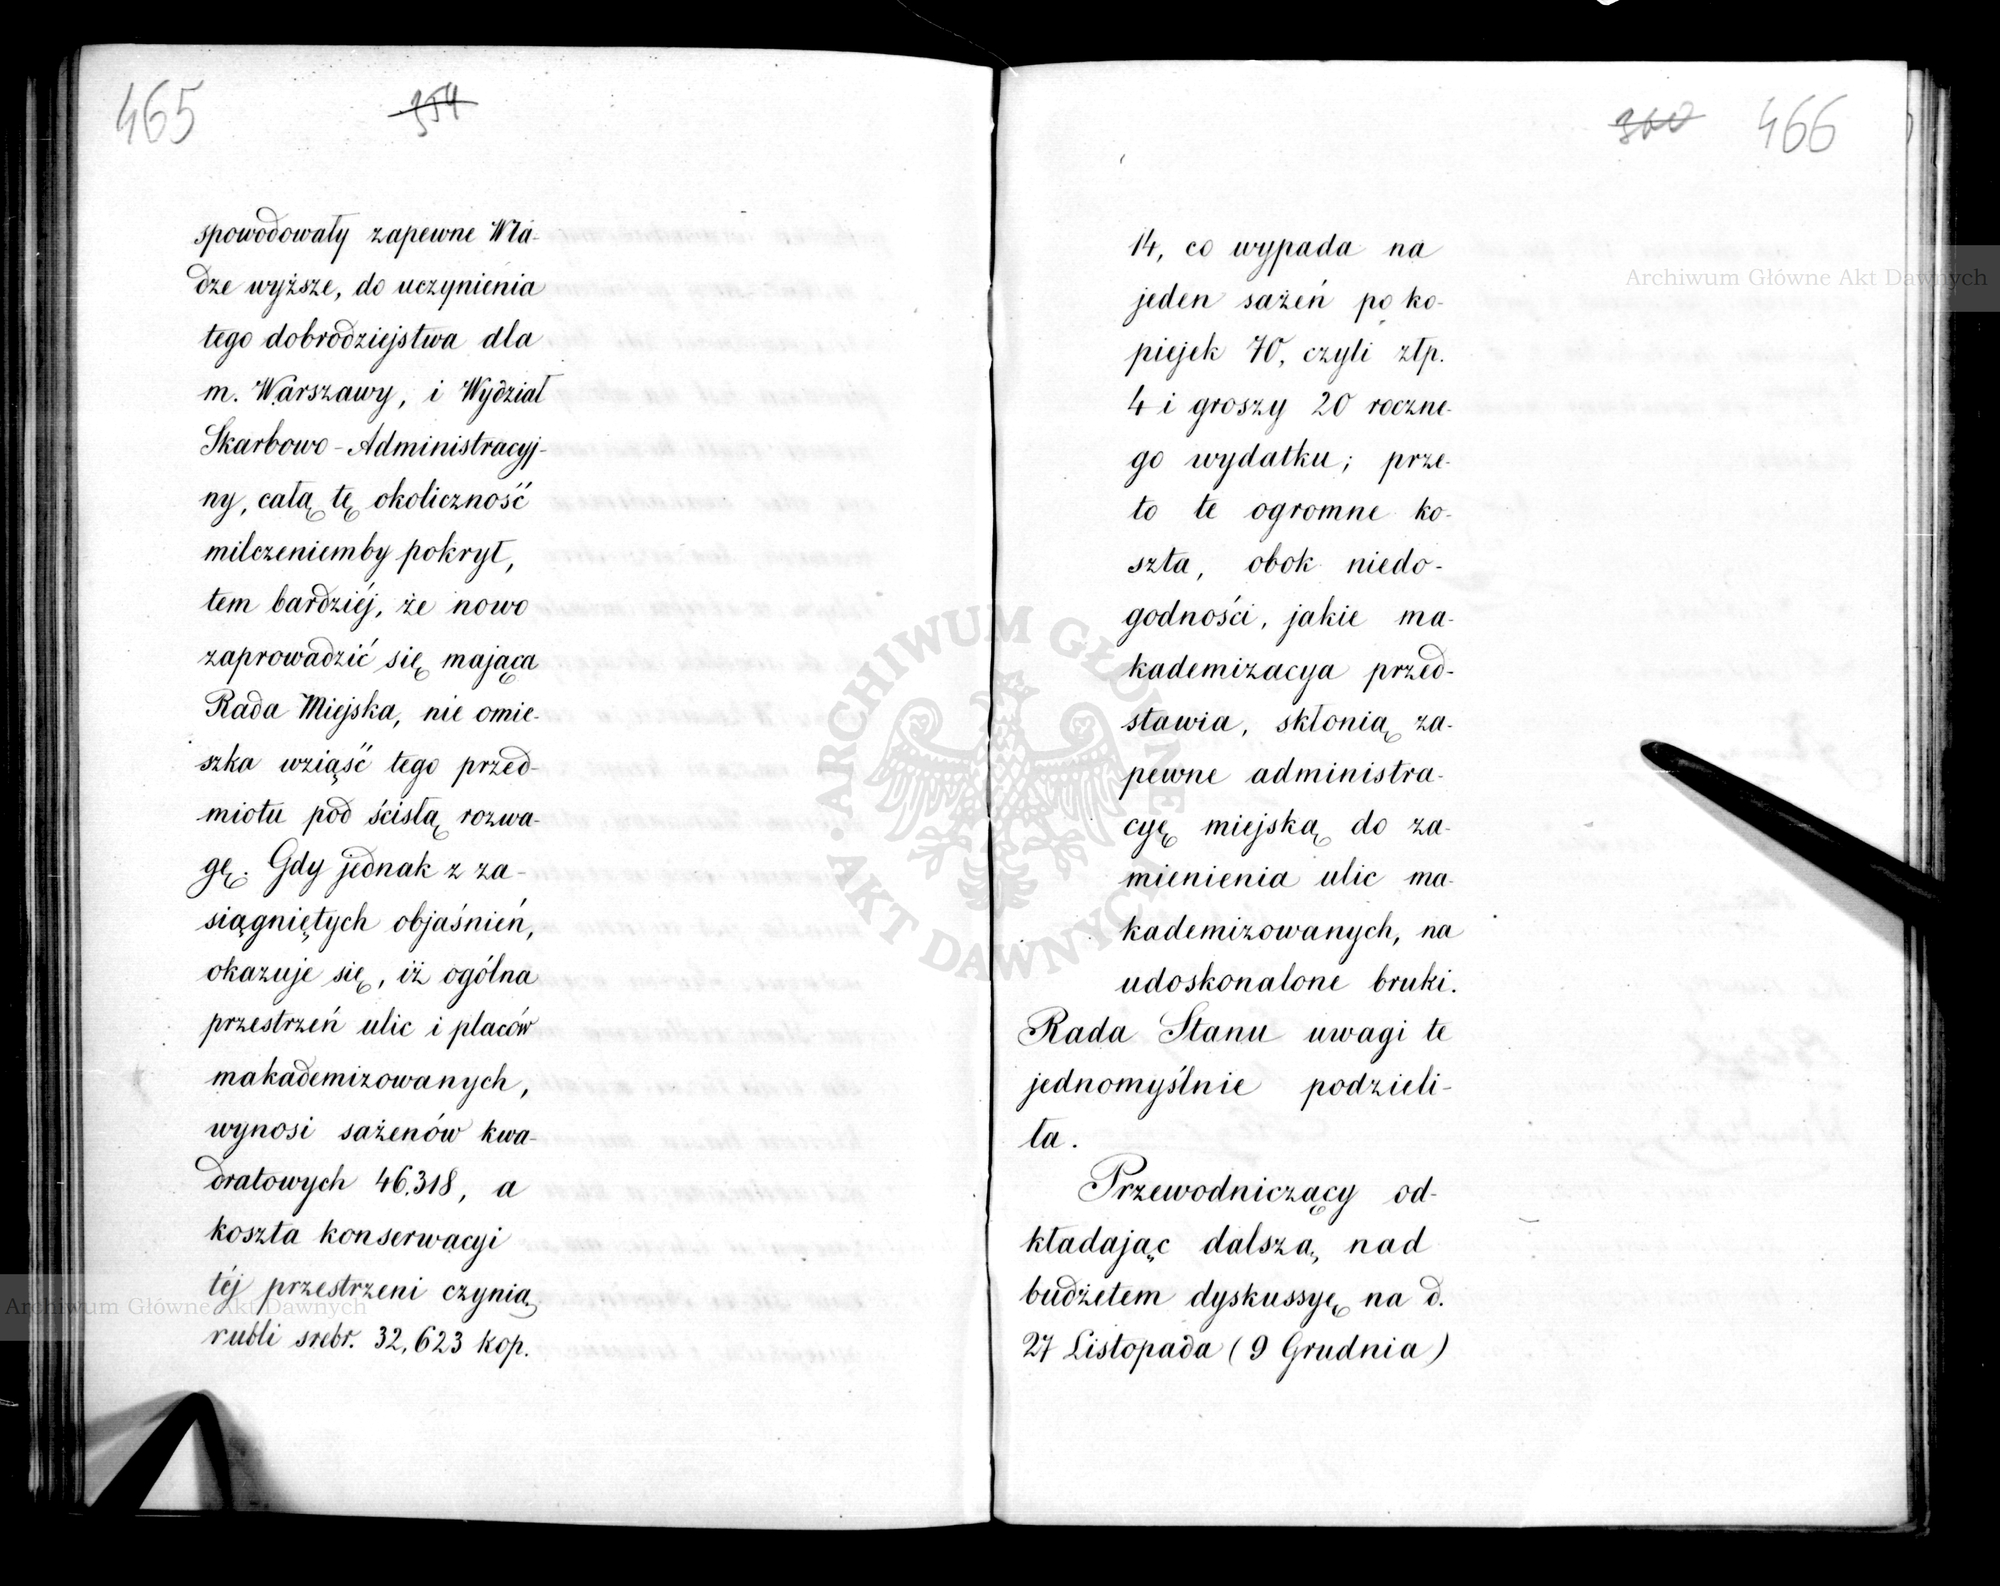 465
spowodowały zapewne Wła-
dze wyższe, do uczynienia
tego dobrodziejstwa dla
m. Warszawy, i Wydział
Skarbowo-Administracyj-
ny, całą tę okoliczność
milczeniemby pokrył,
tem bardziéj, że nowo
zaprowadzić się mająca
Rada Miejska, nie omie-
szka wziąść tego przed-
miotu pod ścisłą rozwa-
gę. Gdy jednak z za-
siągniętych objaśnień,
okazuje się, iż ogólna
przestrzeń ulic i placów
makademizowanych,
wynosi sażenów kwa-
dratowych 46.318, a
koszta konserwacyi
téj przestrzeni czynią
rubli srebr. 32,623 kop.
360 466
14, co wypada na
jeden sażeń po ko-
piejek 70, czyli złp.
4 i groszy 20 roczne-
go wydatku; prze-
to te ogromne ko-
szta, obok niedo-
godności, jakie ma-
kademizacya przed-
stawia, skłonią za-
pewne administra-
cyę miejską do za-
mienienia ulic ma-
kademizowanych, na
udoskonalone bruki.
Rada Stanu uwagi te
jednomyślnie podzieli-
ła.
Przewodniczący od-
kładając dalszą, nad
budżetem dyskussyę na d.
27 Listopada (9 Grudnia)
Archiwum Główne Akt Dawnych
Archiwum Główne Akt Dawnych
ARCHIWUM GŁÓWNE
AKT DAWNYCH